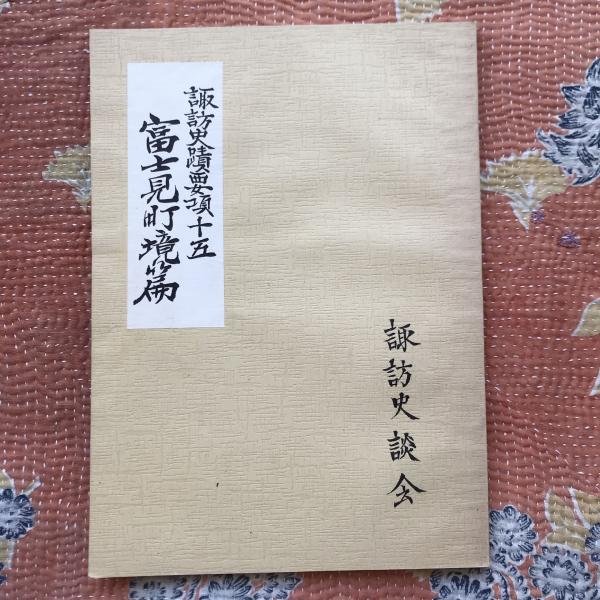 諏訪史蹟要項十五
富士見町境篇
諏訪史談会